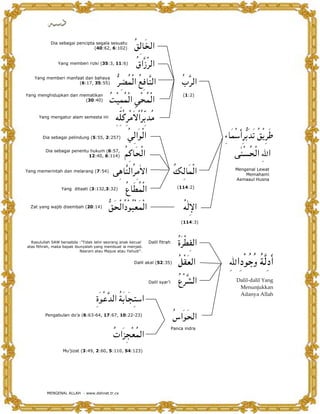 Dia sebagai pencipta segala sesuatu
(40:62, 6:102)
الْخَالِقُ
Yang memberi rizki (35:3, 11:6)
الرَّزَّاقُ
Yang memberi manfaat dan bahaya
(6:17, 39:55)
النَّافِعُ الْمُضِرُّ
الرَّبُّ
(1:2)
Yang menghidupkan dan mematikan
(30:40)
الْمُحْيِي الْمُمِيْتُ
Yang mengatur alam semesta ini
مُدَبِّرُ الْأَمْرِ كُلِّهِ
Dia sebagai pelindung (5:55, 2:257)
الْوَالِيُ
طَرِيْقُ تَدَبُّرِ أَسْمَاءِ
اللهِ الْحُسْنَى
Dia sebagai penentu hukum (6:57,
12:40, 6:114)
الْحَاكِمُ
Yang memerintah dan melarang (7:54)
الْأَمْرُ النَّاهِى
الْمَالِكُ
(114:2)
Mengenal Lewat
Memahami
Asmaaul Husna
Yang ditaati (3:132,3:32)
الْمُطَاعُ
Zat yang wajib disembah (20:14)
الْمَعْبُوْدُ الْحَقُّ
الْإِلٰهُ
(114:3)
Rasulullah SAW bersabda :"Tidak lahir seorang anak kecuali
atas fithrah, maka bapak ibunyalah yang membuat ia menjadi
Nasrani atau Majusi atau Yahudi".
Dalil fitrah
الْفِطْرَةُ
Dalil akal (52:35)
الْعَقْلُ
أَدِلَّةُ وُجُوْدِ اللهِ
Dalil syar'i
الشَّرْعُ
Dalil-dalil Yang
Menunjukkan
Adanya Allah
اسْتِجَابَةُ الدَّعْوَةِ
Pengabulan do'a (6:63-64, 17:67, 10:22-23)
الْحَوَاسُّ
Panca indra
الْمُعْجِزَاتُ
Mu'jizat (3:49, 2:60, 5:110, 54:123)
MENGENAL ALLAH - www.dakwat.tr.cx